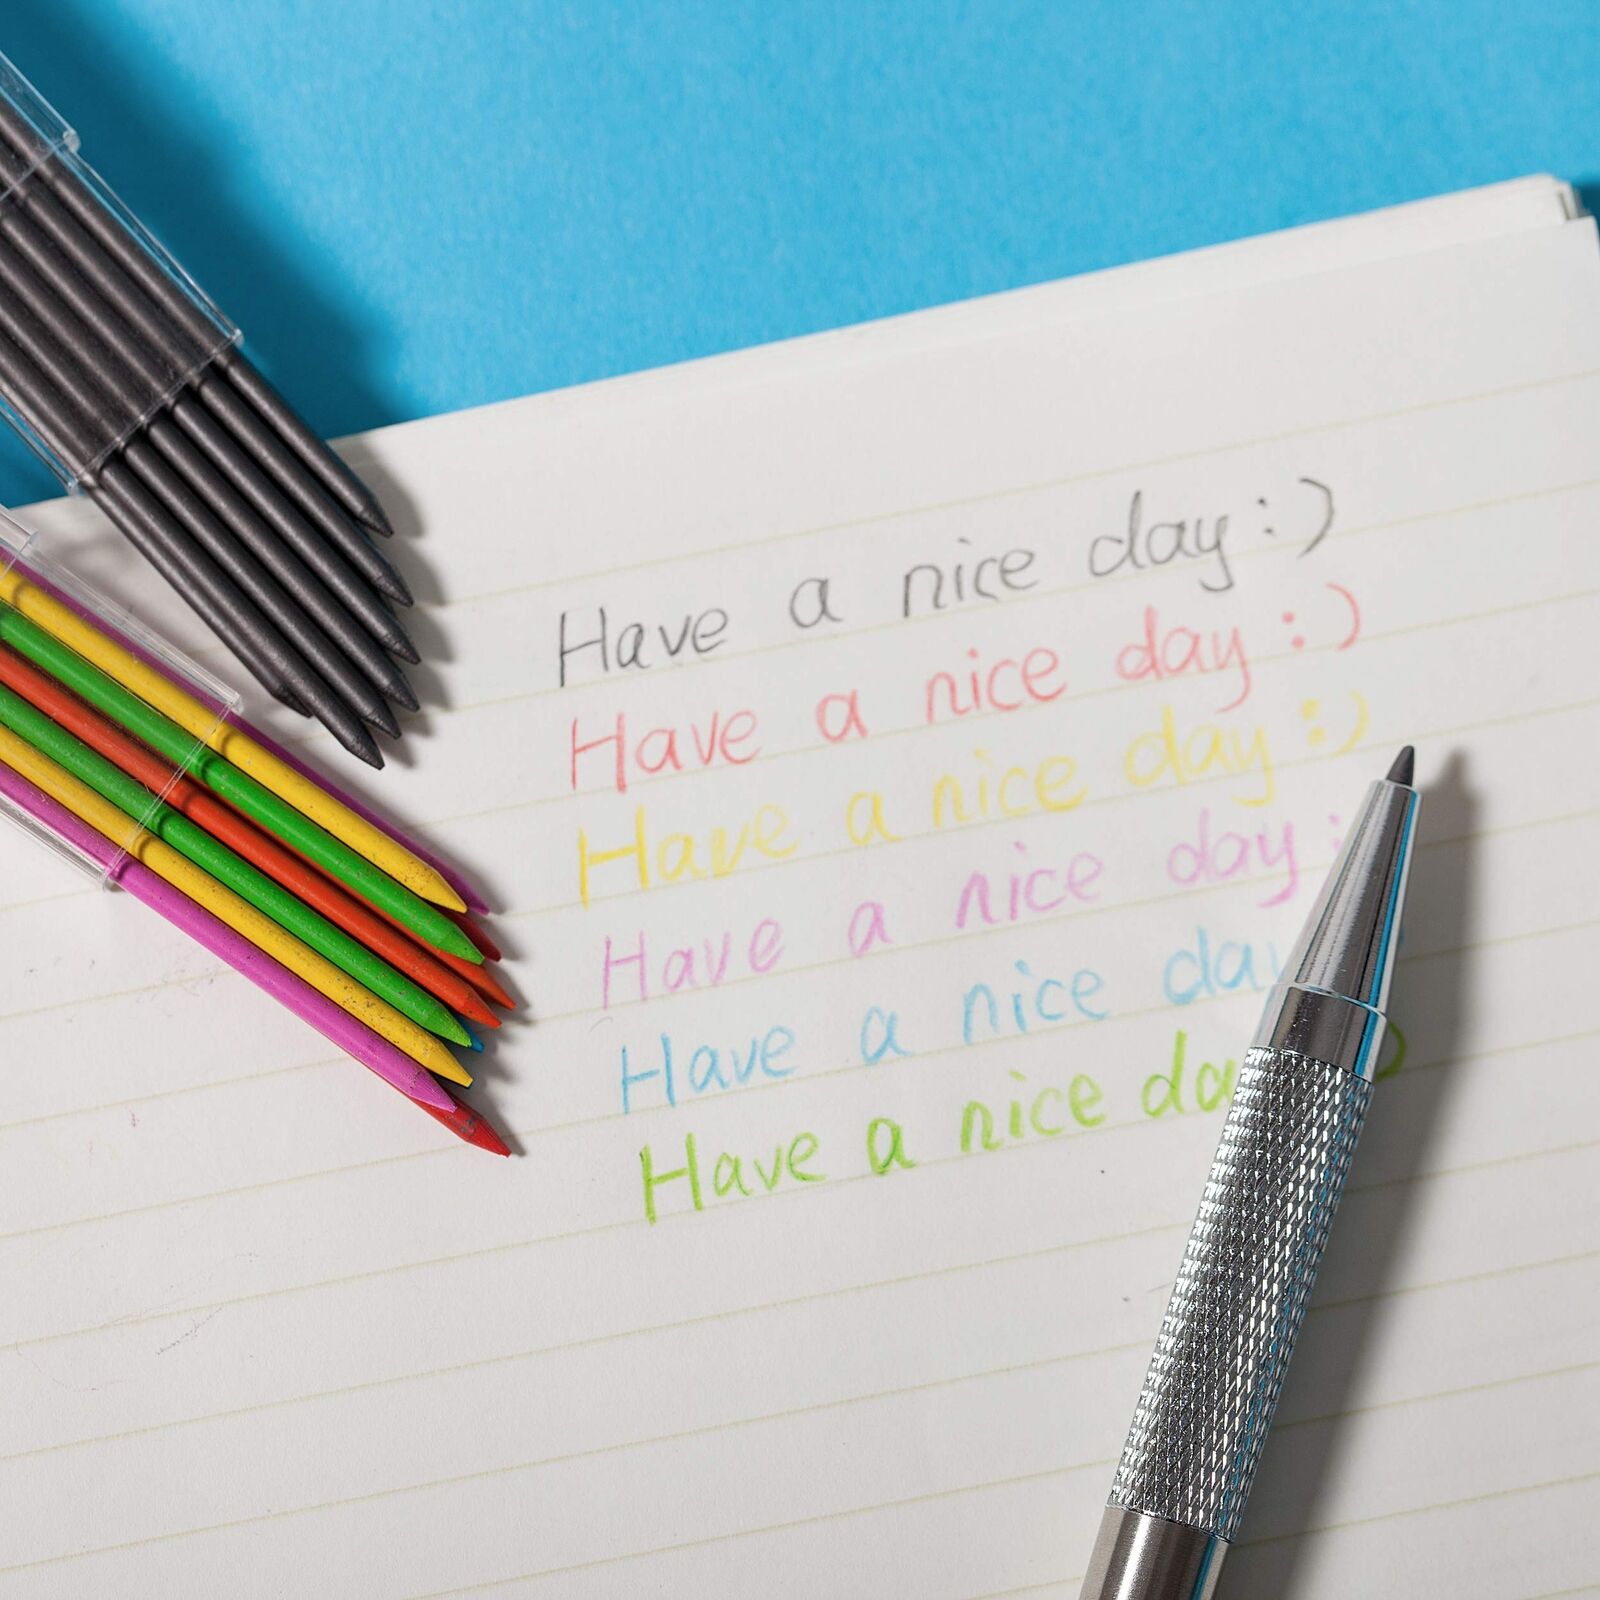 Have a nice day :)
Have a nice day :)
Have a nice day :)
Have a nice day :
Have a nice day
Have a nice da )